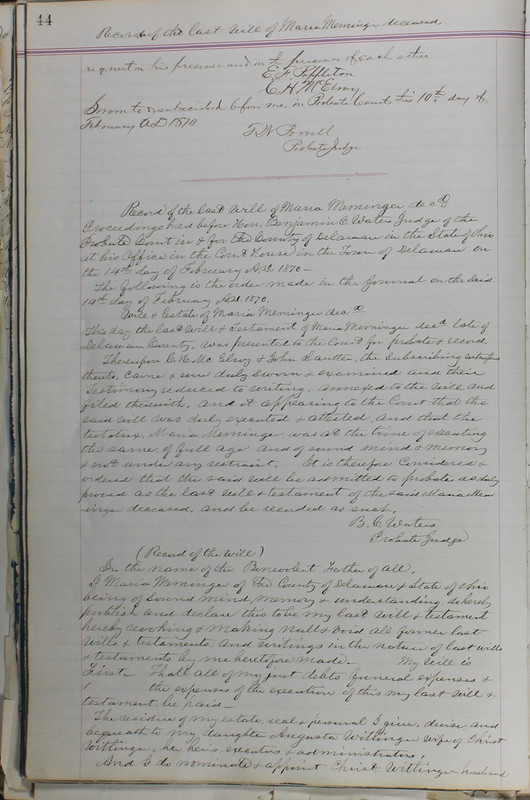 44
Record of the last Will of Maria Meminger deceased
request in his presence and in the presence of each other
E. F. Poppleton
C. H. McElroy
Sworn to & subscribed before me, in Probate Court, this 10th day of
February A.D. 1870
Probate Judge
Record of the last Will of Maria Meminger decd
Proceedings had before Hon. Benjamin C. Waters Judge of the
Probate Court in & for the County of Delaware in the State of Ohio
at his Office in the Court House in the Town of Delaware on
the 14th day of February A.D. 1870 -
The following is the order made in the Journal on the said
14th day of February A.D. 1870.
Will & Estate of Maria Meminger decd
This day the last Will & Testament of Maria Meminger decd late of
Delaware County, was presented to the Court for probate & record.
Thereupon C. H. McElroy & John the subscribing witnesses
thereto, came & were duly sworn & examined and their
testimony reduced to writing, annexed to the will and
filed therewith, and it appearing to the Court that the
said will was duly executed & attested, and that the
testatrix, Maria Meminger was at the time of executing
the same, of full age and of sound mind & memory
& not under any restraint. It is therefore considered &
ordered that the said will be admitted to probate as duly
proved as the last will & testament of the said Maria Mem
inger deceased, and be recorded as such.
B. C. Waters
Probate Judge
(Record of the Will)
In the name of the Benevolent Father of all,
I Maria Meminger of the County of Delaware & State of Ohio
being of sound mind, memory & understanding do hereby
publish and declare this to be my last will & testament
hereby revoking & making null & void all former last
wills & testaments and writings in the nature of last wills
& testaments by me heretofore made. My will is
First - That all of my just debts funeral expenses &
the expenses of the execution of this my last will &
testament be paid -
The residue of my estate, real & personal I give, devise and
bequeath to my daughter Augusta Wittlinger wife of Christ
Wittlinger, her heirs executors & administrators,
And I do nominate & appoint Christ Wittlinger husband